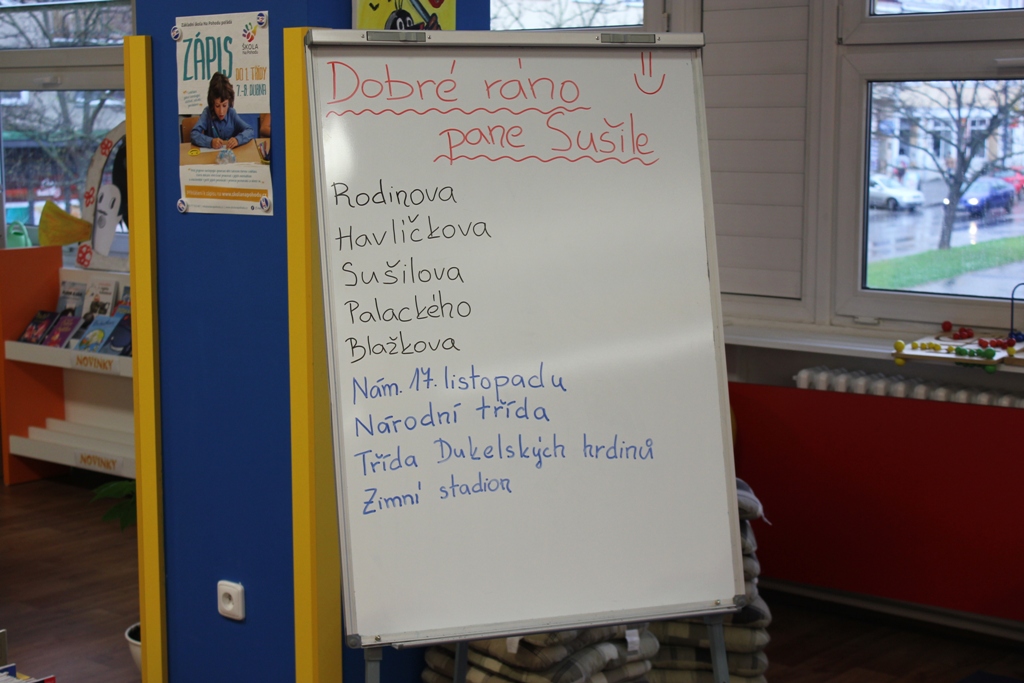 ZÁPIS
DO 1. TŘÍDY
ŠKOLA
Dobré ráno
pane Sušile
Rodinova
Havlíčkova
Sušilova
Palackého
Blažkova
Nám. 17. listopadu
Národní třída
Třída Dukelských hrdinů
Zimní stadion
NOVINKY
NOVINKY